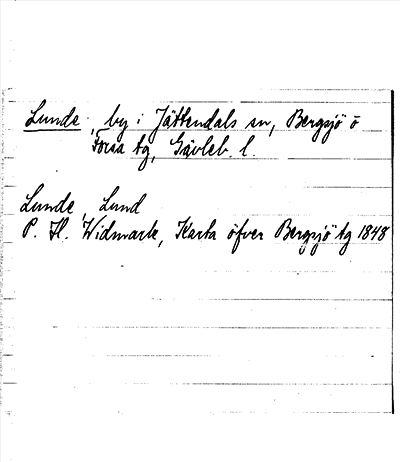 Lunde, by i Jättendals sn, Bergsjö o
Forsa tg, Gävleb. l.
Lunde Lund
P. H. Widmark, Karta öfver Bergsjö tg 1848